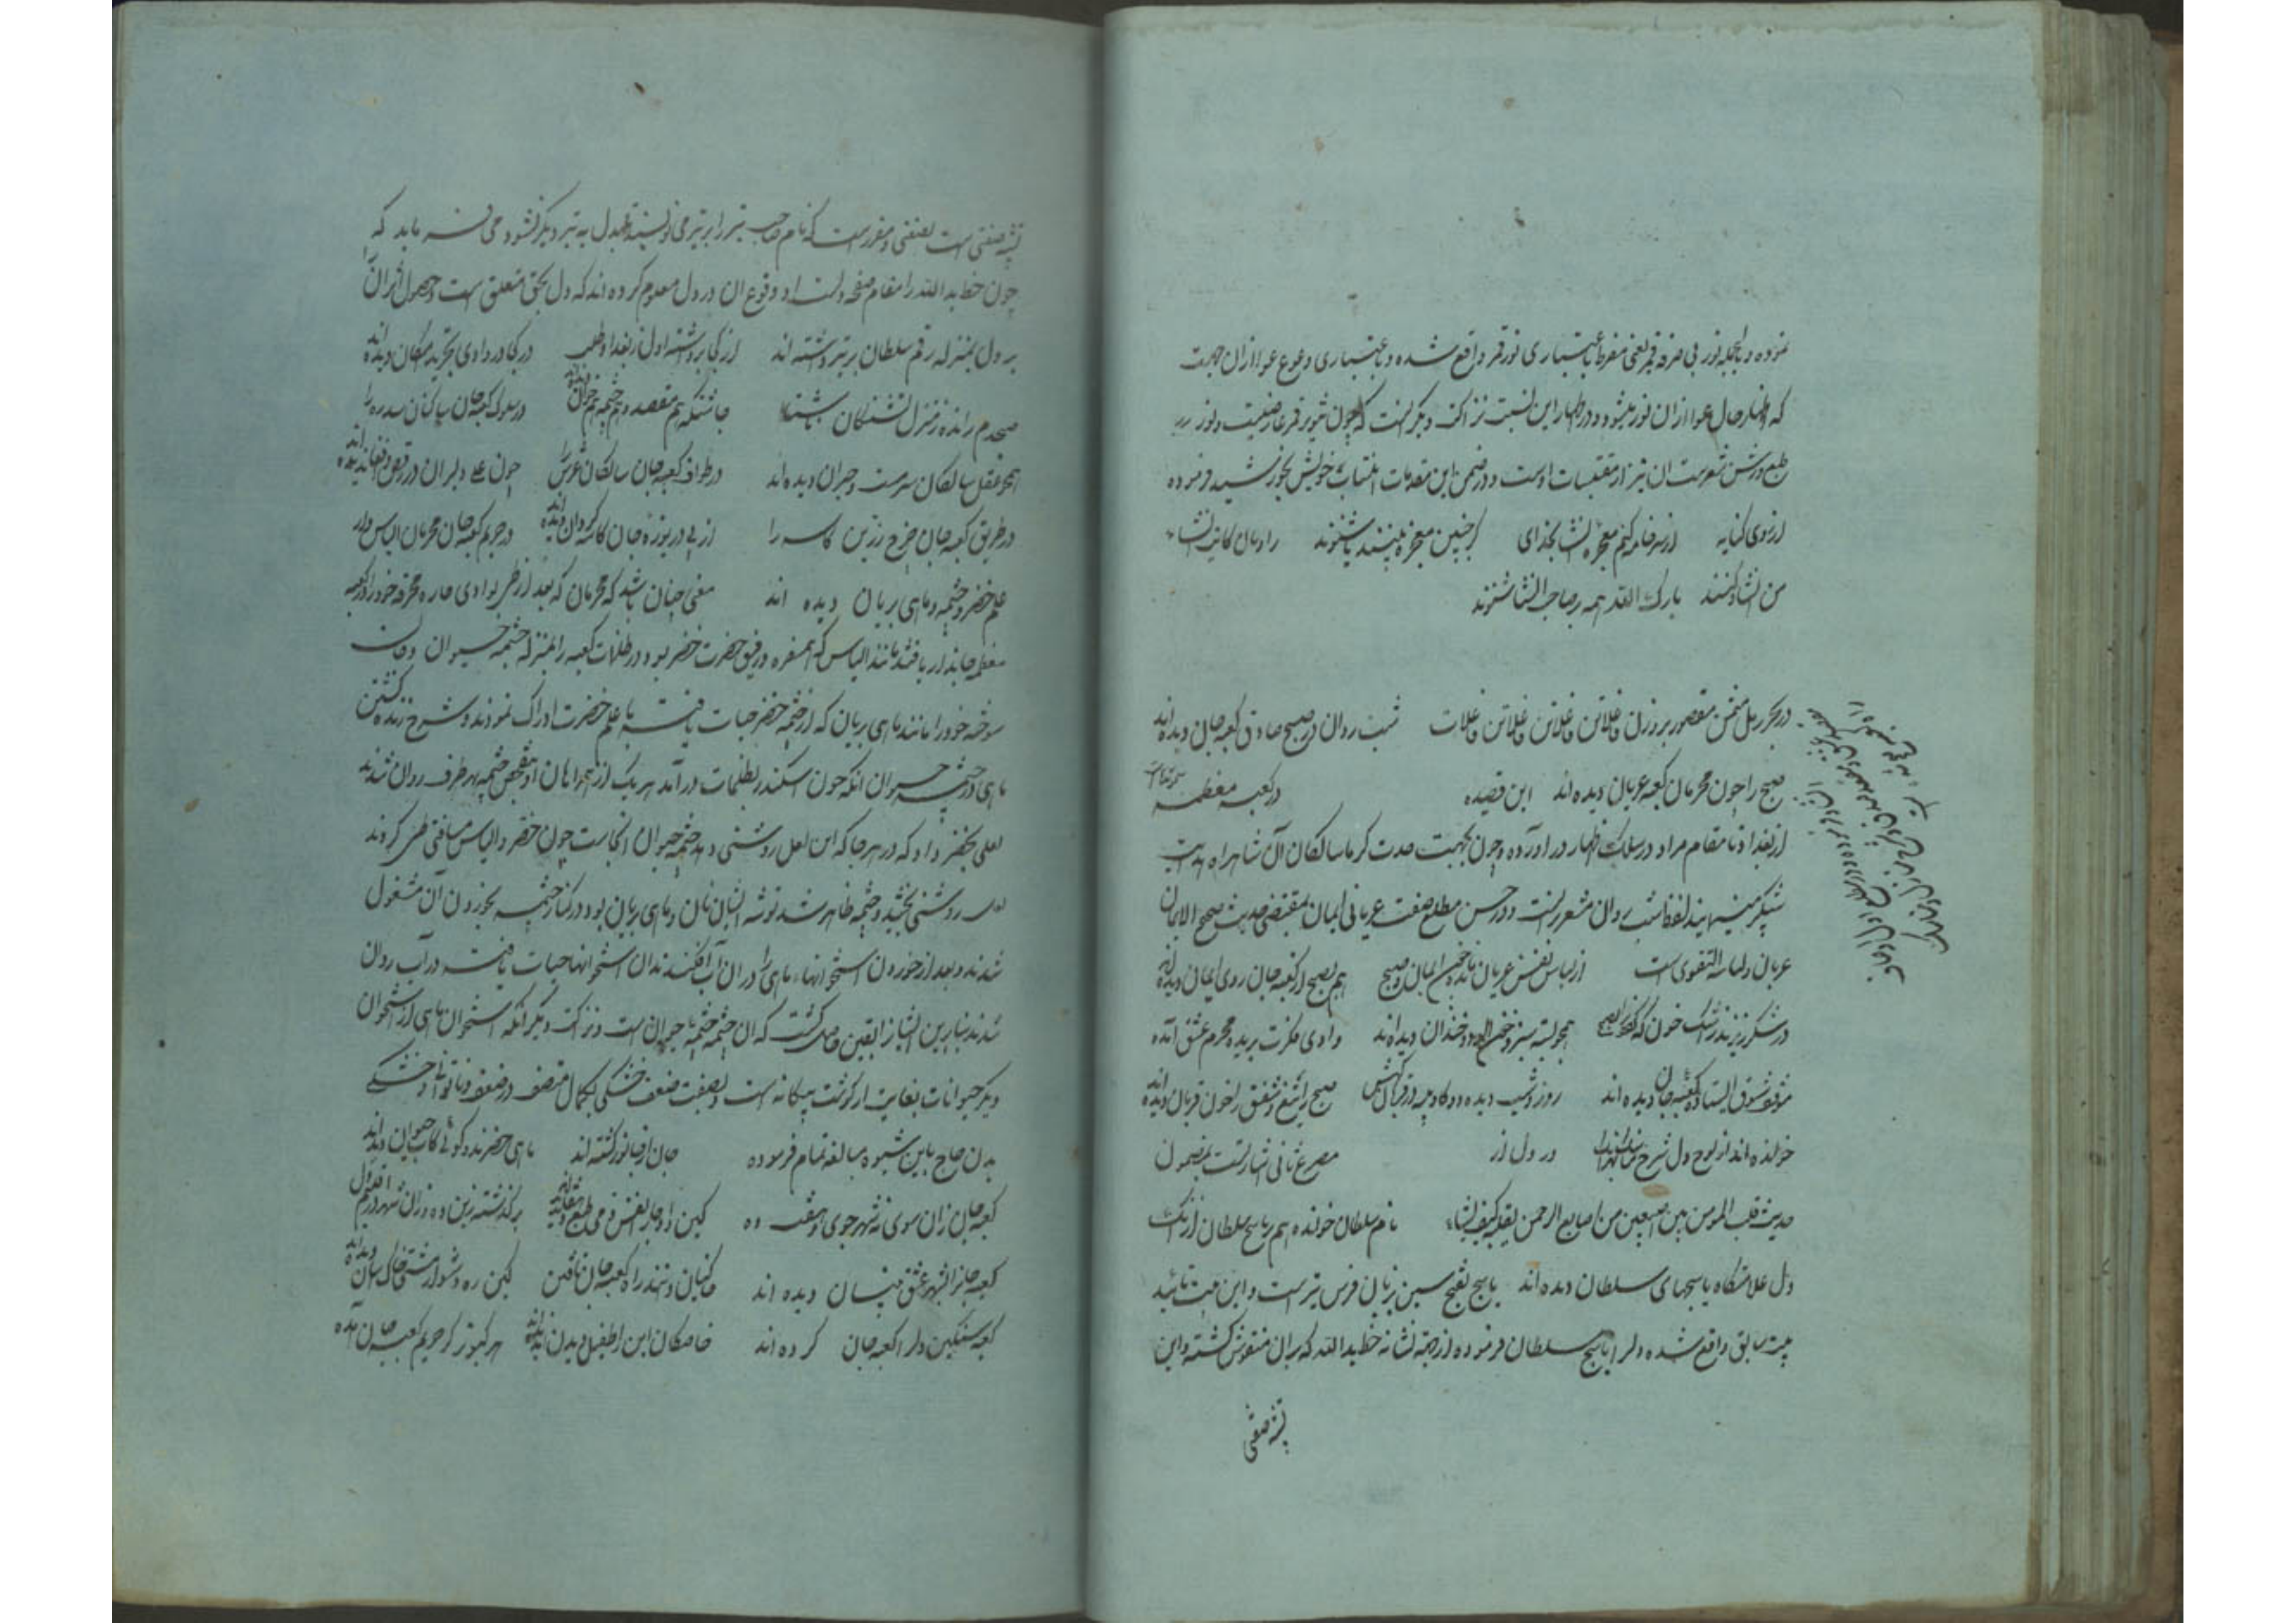 نموده و بالجمله نور بی صرفه قمر یعنی مفرط باعتباری نور قمر واقع شده و باعتباری وعوع عوا ازان جهت
که اظهار حال عوا ازان نور میشود و در اظهار این نسبت نزاکت دیگر انست که چون تنویر قمر عارضیست و نور
طبع روشن شعرست ان نیز از مقتبسات اوست و در ضمن این مقدمات انتساب خویش بخورشید فرموده
از روی کنایه از سر خامه کنم معجزه انشا بخدای گر چنین معجزه بینند یا شنوند راویان کایت انشاء
من انشاد کنند بارک الله همه بر صاحب انشا شنوند
در بحر رمل مثمن مقصور بر وزن فاعلاتن فاعلاتن فاعلاتن فاعلات شب روان در صبح صادق کعبه جان دیده‌اند
صبح را چون محرمان کعبه عریان دیده‌اند این قصیده در کعبه معظمه
از بغداد تا مقام مراد در سلک اظهار در آورده و چون بجهت حدت گرما سالکان آن شاهراه هدایت
شبگیر مینمایند لفظ شب روان مشعر انست و در حسن مطلع صفت عریانی ایمان بمقتضی حدیث صحیح الایمان
عریان و لباسه التقوی است از لباس نفس عریان مانده چون ایمان و صبح هم بصبح از کعبه جان روی ایمان دیده‌اند
در شکر ریزند ز اشک خون که گردون را بصبح همچو پسته سبز و خون آلود و خندان دیده‌اند وادی فکرت بریده محرم عشق آمده
موقف شوق ایستاده کعبه جان دیده‌اند روز و شب دیده دو گاو پیسه در قربانگهش صبح را تیغ و شفق را خون قربان دیده‌اند
خوانده‌اند از لوح دل شرح مناسک در دل از مصرع ثانی اشارتست بمضمون
حدیث قلب المومن بین اصبعین من اصابع الرحمن یقلبه کیف یشاء نام سلطان خوانده هم بر یاسج سلطان ازانک
دل علامتگاه یاسجهای سلطان دیده‌اند یاسج بفتح سین بزبان فرس تیرست و این بیت تائید
بیت سابق واقع شده و لر یاسج سلطان فرموده از جهة نشانه خط یدالله که بران منقوش گشته و این
پشه صفتی
پشه صفتی است بصنفی و مقررست که نام صاحب تیر را بر تیر می‌نویسند تا مبدل به تیر دیگر نشود می‌فرماید که
چون خط ید الله را مقام صفحه دلست از وقوع ان در دل معلوم کرده‌اند که دل بحق متعلق است و حصول اثر ان
بر دل بمنزله رقم سلطان بر تیر داشته‌اند از کجا برداشته اول ز بغداد طلب در کجا در وادی تجرید امکان دیده‌اند
صبحدم رانده ز منزل تشنگان ناشتا چاشتگه هم مقصد و هم چشمه هم خوان دیده‌اند در سلوک کعبه جان ساکنان سدره را
همچو عقل سالکان سرمست و حیران دیده‌اند در طواف کعبه جان سالکان عرش را چون حلی دلبران در رقص و افغان دیده‌اند
در طریق کعبه جان چرخ زرین کاسه را از پی دریوزه جان کاسه گردان دیده‌اند در حریم کعبه جان محرمان الیاس وار
علم خضر و چشمه و ماهی بریان دیده اند معنی چنان باشد که محرمان که بعد از طی بوادی حاره محرقه خود را کعبه
معظمه جاندار یافتند مانند الیاس که همسفره و رفیق حضرت خضر بود در ظلمات کعبه را بمنزله چشمه حیوان و جان
سوخته خود را مانند ماهی بریان که از چشمه خضر حیات یافته با علم حضرت ادراک نمودند و شرح زنده گشتن
ماهی در چشمه حیوان انکه چون اسکندر بظلمات در آمد هر یک از همراهان او بتفحص چشمه بهر طرف روان شدند
لعلی بخضر داد که در هر جا که این لعل روشنی دهد چشمه حیوان انجاست چون خضر و الیاس مسافتی طی کردند
لعل روشنی بخشید و چشمه ظاهر شد توشه ایشان نان و ماهی بریان بود در کنار چشمه بخوردن آن مشغول
شدند و بعد از خوردن استخوانهاء ماهی را در ان آب افکندند ان استخوانها حیات یافته در آب روان
شدند بنابرین ایشانرا یقین حاصل گشت که ان چشمه چشمه حیوان است و نزاکت دیگر انکه استخوان ماهی از استخوان
دیگر حیوانات بغایت از گوشت بیگانه است و بصفت ضعف خشکی بکمال متصف در ضعف و ناتوانی و خشکی
بدن حاج باین شیوه مبالغه تمام فرموده جان از فانور گشته‌اند ماهی خضرند گوئی کاب حیوان دیده‌اند
کعبه جان زان سوی نه شهر جوی و هفت ده کین دو جا را نفس امیر و طبع دهقان دیده‌اند برگذشته زین ده و زان شهر و در اقلیم دل
کعبه جانرا بشهر عشق بنیان دیده اند خاکیان دانند راه کعبه جان یافتن کین ره دشوار مشتی خاک آسان دیده‌اند
کعبه سنگین را کعبه جان کرده‌اند خاصگان این را طفیل دیدن آن دیده‌اند هر کبوتر کز حریم کعبه جان آمده